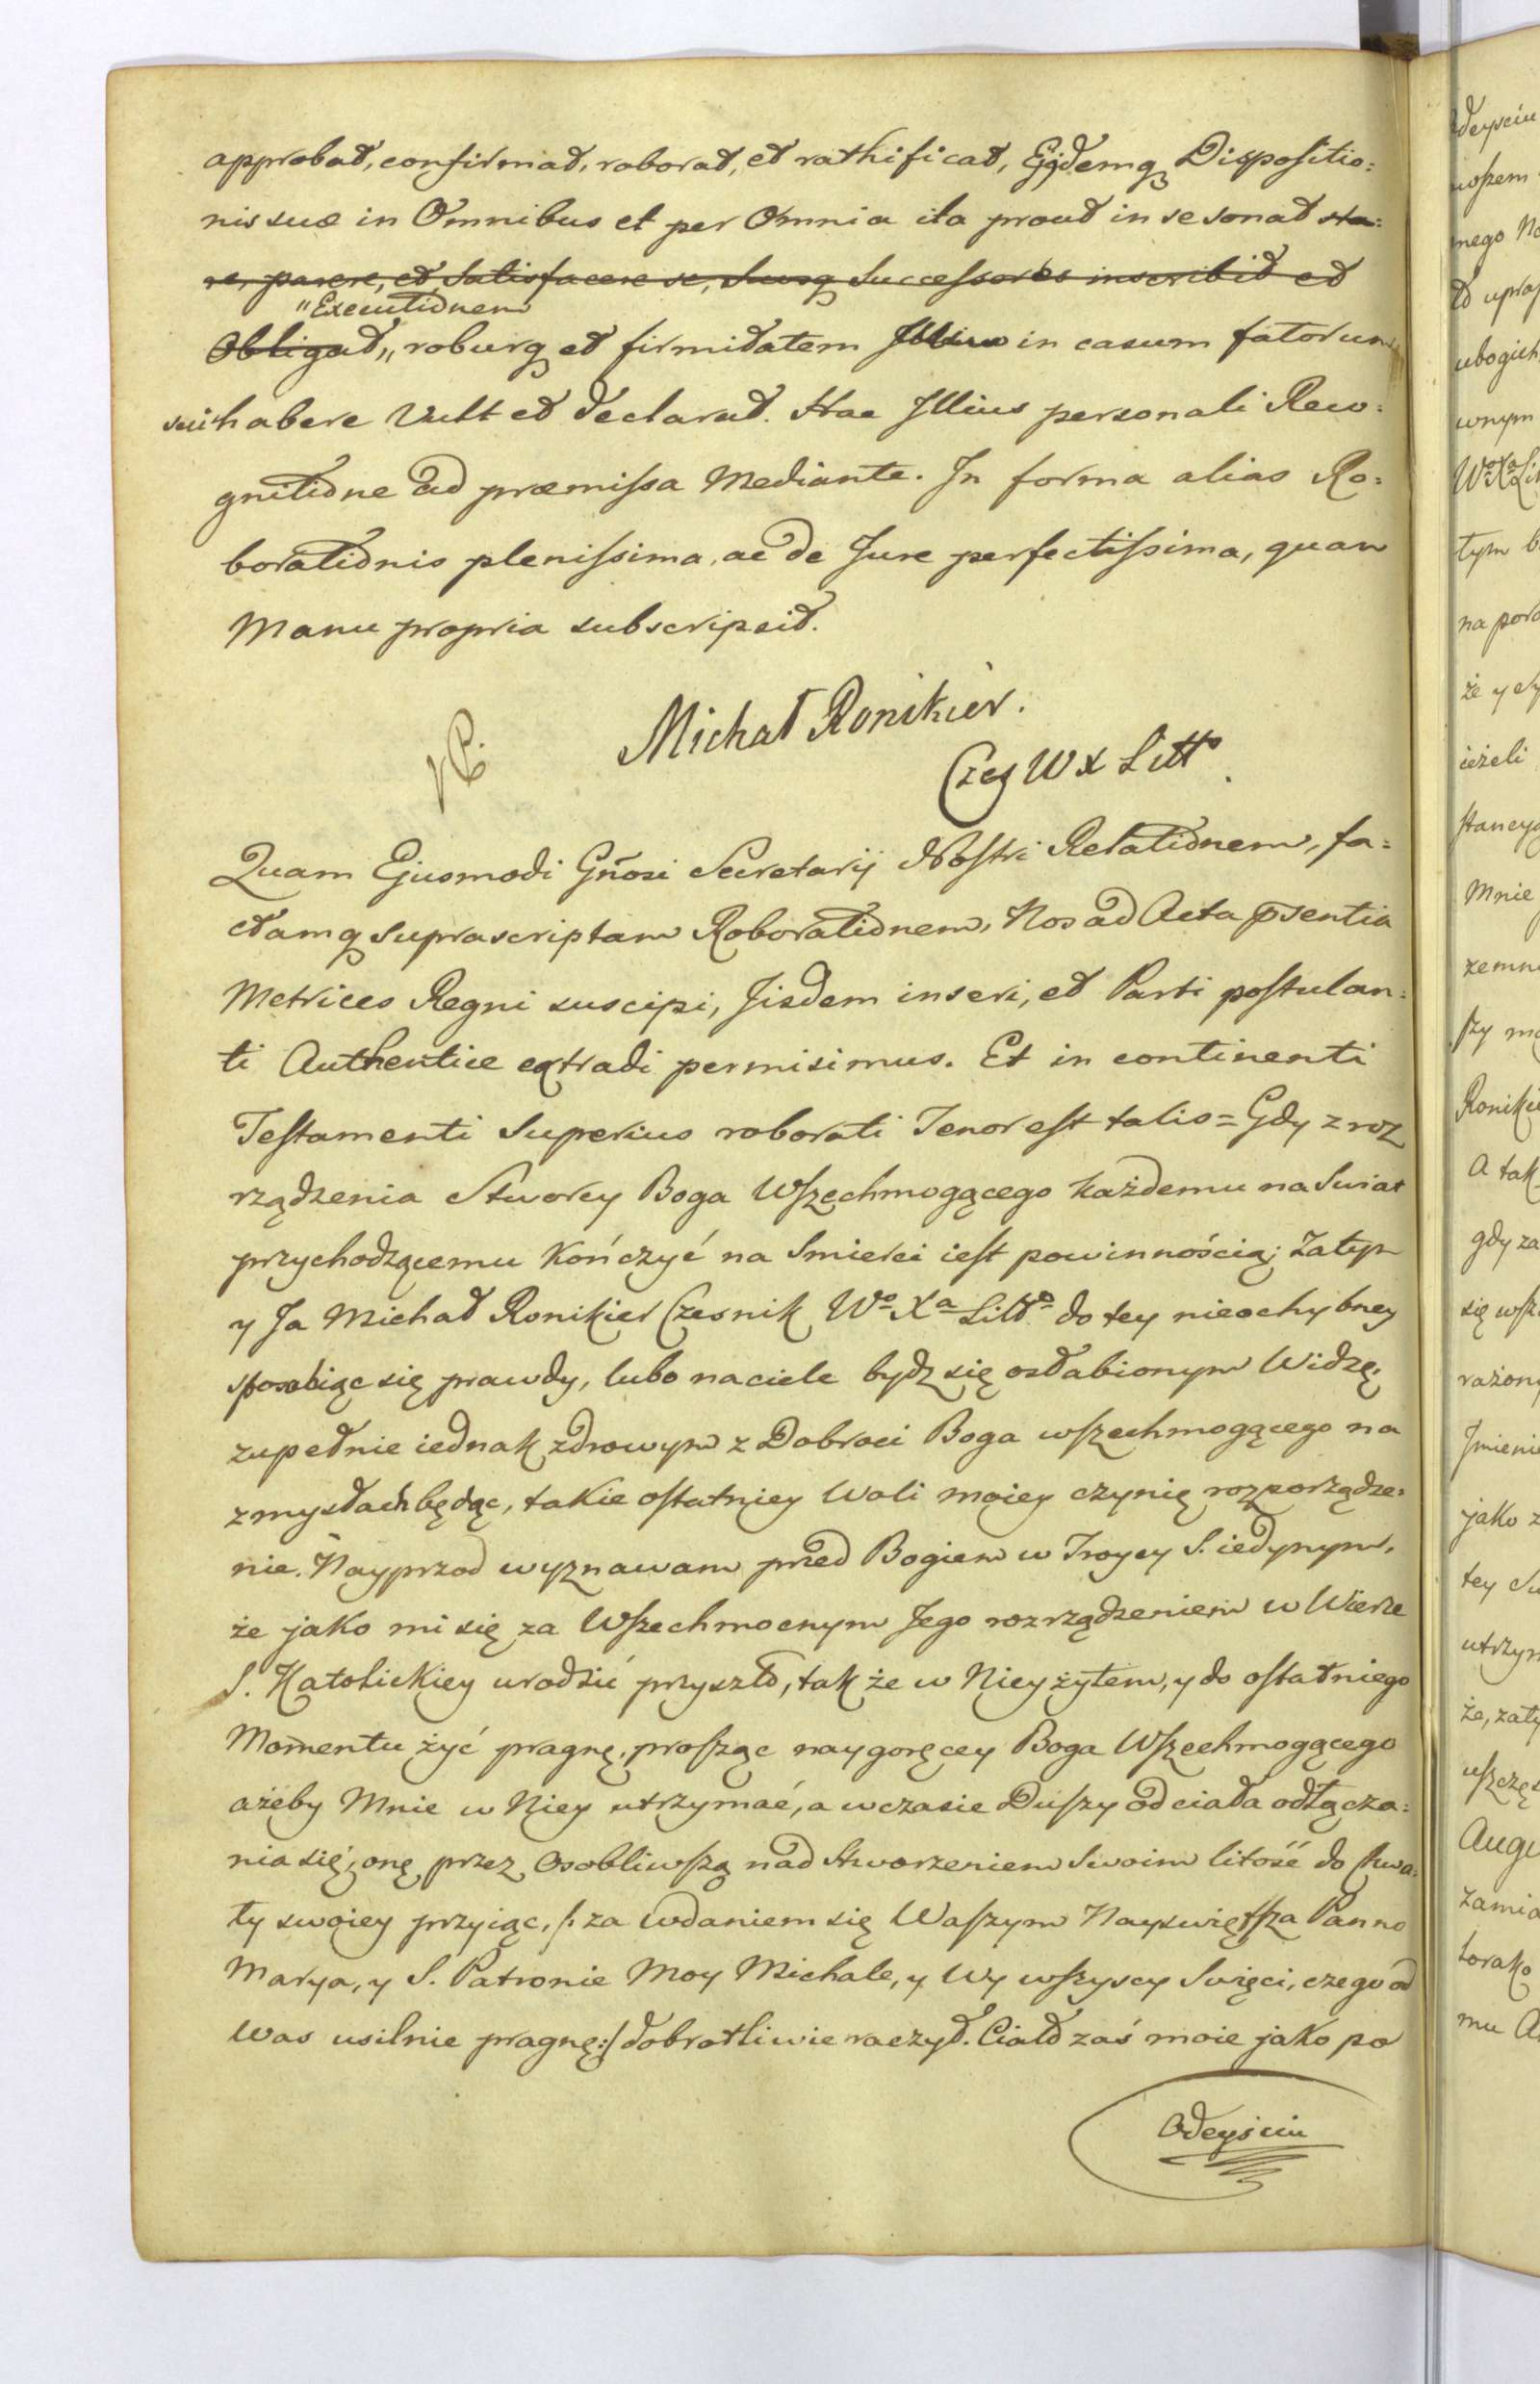 approbat, confirmat, roborat, et rathificat, Ejqdemq Dispositio:
nis suæ in Omnibus et per Omnia ita prout in se sonat sta:
re, parere, et Satisfacere se, Suosq Successores inscribit et
"Executionem
Obligat,, roburq et firmitatem Illius in casum fatorum
sui habere Vult et declarat. Hac Illius personali Reco:
gnitione ad præmissa Mediante. In forma alias Ro:
borationis plenissima, ac de Jure perfectissima, quam
Manu propria subscripsit.
Michał Ronikier.
Czes W X Litt.
Quam Ejusmodi Gñosi Secretarij Nostri Relationem, fa=
ctamq suprascriptam Roborationem, Nos ad Acta p̄sentia
Metrices Regni suscipi, Jisdem inseri, et Parti postulan:
ti Authentice extradi permisimus. Et in continenti
Testamenti Superius roborati Tenor est talis = Gdy z roz
rządzenia Stworcy Boga Wszechmogącego każdemu na Swiat
przychodzącemu kończyć na Smierci iest powinnością; Zatym
y Ja Michał Ronikier Czesnik Wo Xa Littо do tey nieochybney
sposobiąc się prawdy, lubo na ciele bydz się osłabionym Widzę,
zupełnie iednak zdrowym z Dobroci Boga wszechmogącego na
zmysłach będąc, takie ostatniey Woli moiey czynię rozporządze:
nie. Nayprzod wyznawam przed Bogiem w Troycy S. iedynym,
że jako mi się za Wszechmocnym Jego rozrządzeniem w Wierze
S. Katolickiey urodzić przyszło, tak że w Niey żyłem, y do ostatniego
Momentu żyć pragnę, prosząc naygoręcey Boga Wszechmogącego
ażeby Mnie w Niey utrzymać, a w czasie Duszy od ciała odłącza:
nia się, onę przez Osobliwszą nad Stworzeniem Swoim litość do Chwa:
ły swoiey przyiąc, /: za wdaniem się Waszym Nayswiętsza Panno
Marya, y S. Patronie Moy Michale, y Wy wszyscy Swięci, czego od
Was usilnie pragnę :/ dobrotliwie raczył. Ciało zaś moie jako po
Odeysciu